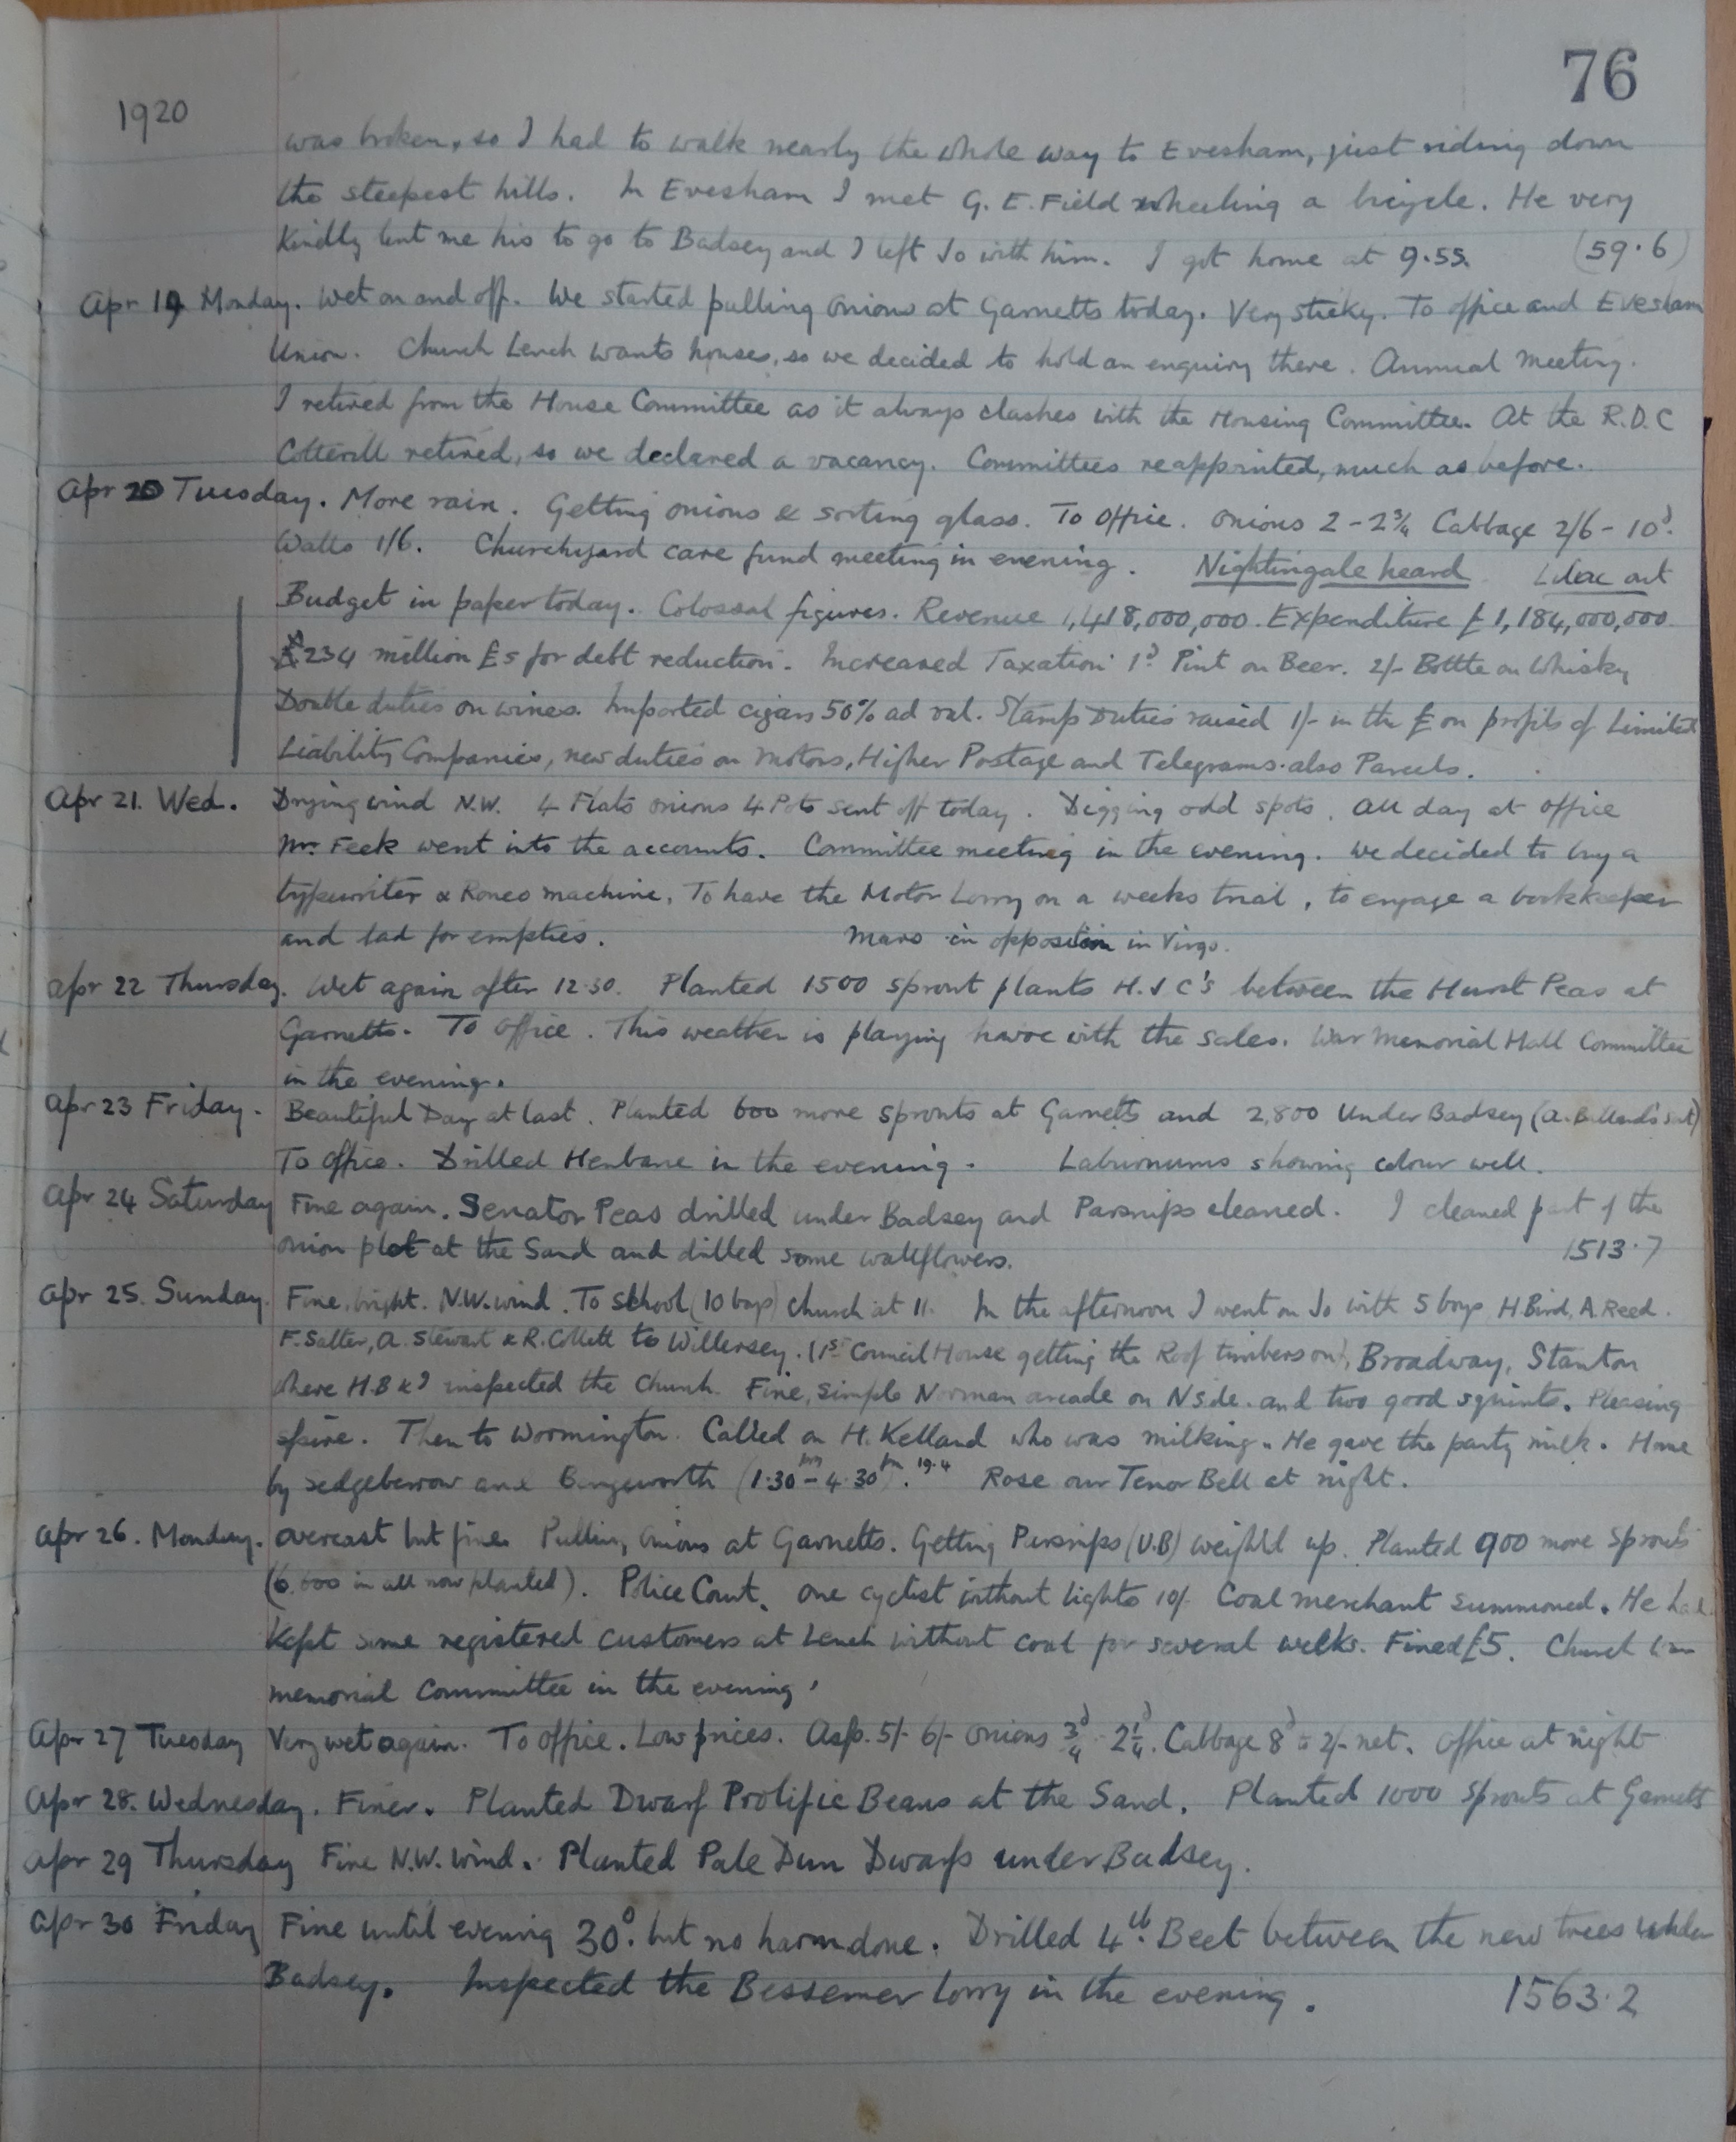 76
1920
was broken, so I had to walk nearly the whole way to Evesham, just riding down
the steepest hills. In Evesham I met G. E. Field wheeling a bicycle. He very
kindly lent me his to go to Badsey and I left Jo with him. I got home at 9.55. (59.6)
Apr 19 Monday. Wet on and off. We started pulling onions at Garnetts today. Very sticky. To office and Evesham
Union. Church Lench wants houses, so we decided to hold an enquiry there. Annual meeting.
I retired from the House Committee as it always clashes with the Housing Committee. At the R.D.C
Cotterill retired, so we declared a vacancy. Committees reappointed, much as before.
Apr 20 Tuesday. More rain. Getting onions & sorting glass. To Office. Onions 2 - 2¾ Cabbage 2/6 - 10d.
Walls 1/6. Churchyard care fund meeting in evening. Nightingale heard Lilac out
Budget in paper today. Colossal figures. Revenue 1,418,000,000. Expenditure £1,184,000,000
£234 million £s for debt reduction. Increased Taxation 1d Pint on Beer. 2/- Bottle on Whisky
Double duties on wines. Imported cigars 50% ad val. Stamp Duties raised 1/- in the £ on profits of Limited
Liability Companies, new duties on Motors, Higher Postage and Telegrams. also Parcels.
Apr 21. Wed. Drying wind N.W. 4 Flats onions 4 Pots sent off today. Digging odd spots. All day at office
Mr. Feek went into the accounts. Committee meeting in the evening. We decided to buy a
typewriter & Roneo machine. To have the Motor Lorry on a weeks trial, to engage a bookkeeper
and lad for empties. Mars in opposition in Virgo.
Apr 22 Thursday. Wet again after 12.30. Planted 1500 sprout plants H.J C's between the Hurst Peas at
Garnetts. To office. This weather is playing havoc with the sales. War Memorial Hall Committee
in the evening.
Apr 23 Friday. Beautiful Day at last. Planted 600 more sprouts at Garnetts and 2,800 Under Badsey (A. Ballard's sort)
To office. Drilled Henbane in the evening. Laburnums showing colour well.
Apr 24 Saturday Fine again. Senator Peas drilled under Badsey and Parsnips cleaned. I cleaned part of the
onion plot at the Sand and drilled some wallflowers. 1513.7
Apr 25. Sunday. Fine, bright. N.W. wind. To School (10 boys) Church at 11. In the afternoon I went on Jo with 5 boys H. Bird, A. Reed.
F. Salter, A. Stewart & R. Collett to Willersey. (1st Council House getting the Roof timbers on), Broadway, Stanton
where H.B & I inspected the Church. Fine, simple Norman arcade on N side. and two good squints. Pleasing
spire. Then to Wormington. Called on H. Kelland who was milking. He gave the party milk. Home
by Sedgeberrow and Bengeworth (1.30 pm - 4.30 pm). 19.4 Rose our Tenor Bell at night.
Apr 26. Monday. Overcast but fine. Pulling Onions at Garnetts. Getting Parsnips (U.B) weigh'd up. Planted 900 more Sprouts
(6,600 in all now planted). Police Court. One cyclist without lights 10/- Coal merchant summoned. He had
kept some registered customers at Lench without coal for several weeks. Fined £5. Church War
memorial Committee in the evening.
Apr 27 Tuesday Very wet again. To office. Low prices. Asp. 5/- 6/- Onions ¾d - 2¼d. Cabbage 8d to 2/- net. Office at night
Apr 28. Wednesday. Finer. Planted Dwarf Prolific Beans at the Sand. Planted 1000 Sprouts at Garnetts
Apr 29 Thursday Fine N.W. Wind. Planted Pale Dun Dwarfs under Badsey.
Apr 30 Friday Fine until evening 30°. but no harm done. Drilled 4lb. Beet between the new trees under
Badsey. Inspected the Bessemer Lorry in the evening. 1563.2